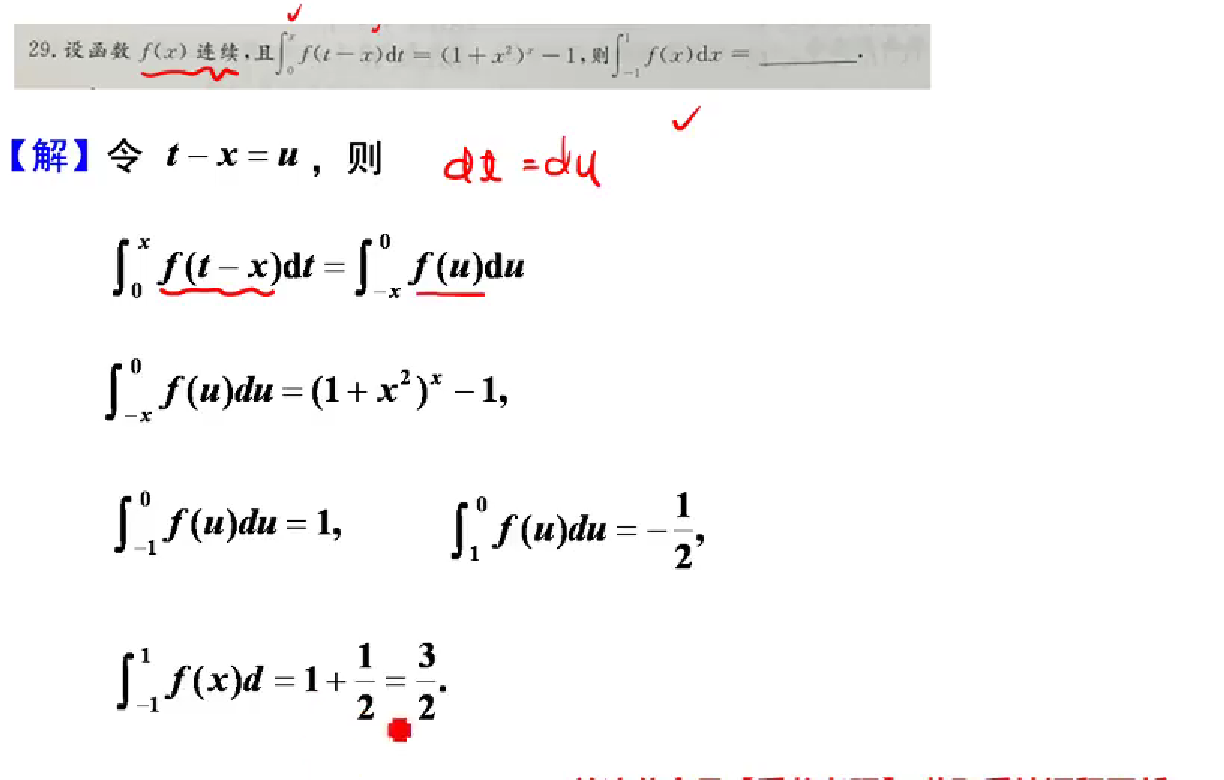 29. 设函数 f(x) 连续,且∫₀ˣ f(t−x)dt = (1+x²)ˣ − 1,则∫₋₁¹ f(x)dx = ______.
【解】令 t − x = u ，则 dt = du
∫₀ˣ f(t − x)dt = ∫₋ₓ⁰ f(u)du
∫₋ₓ⁰ f(u)du = (1 + x²)ˣ − 1,
∫₋₁⁰ f(u)du = 1, ∫₁⁰ f(u)du = −1/2,
∫₋₁¹ f(x)d = 1 + 1/2 = 3/2.